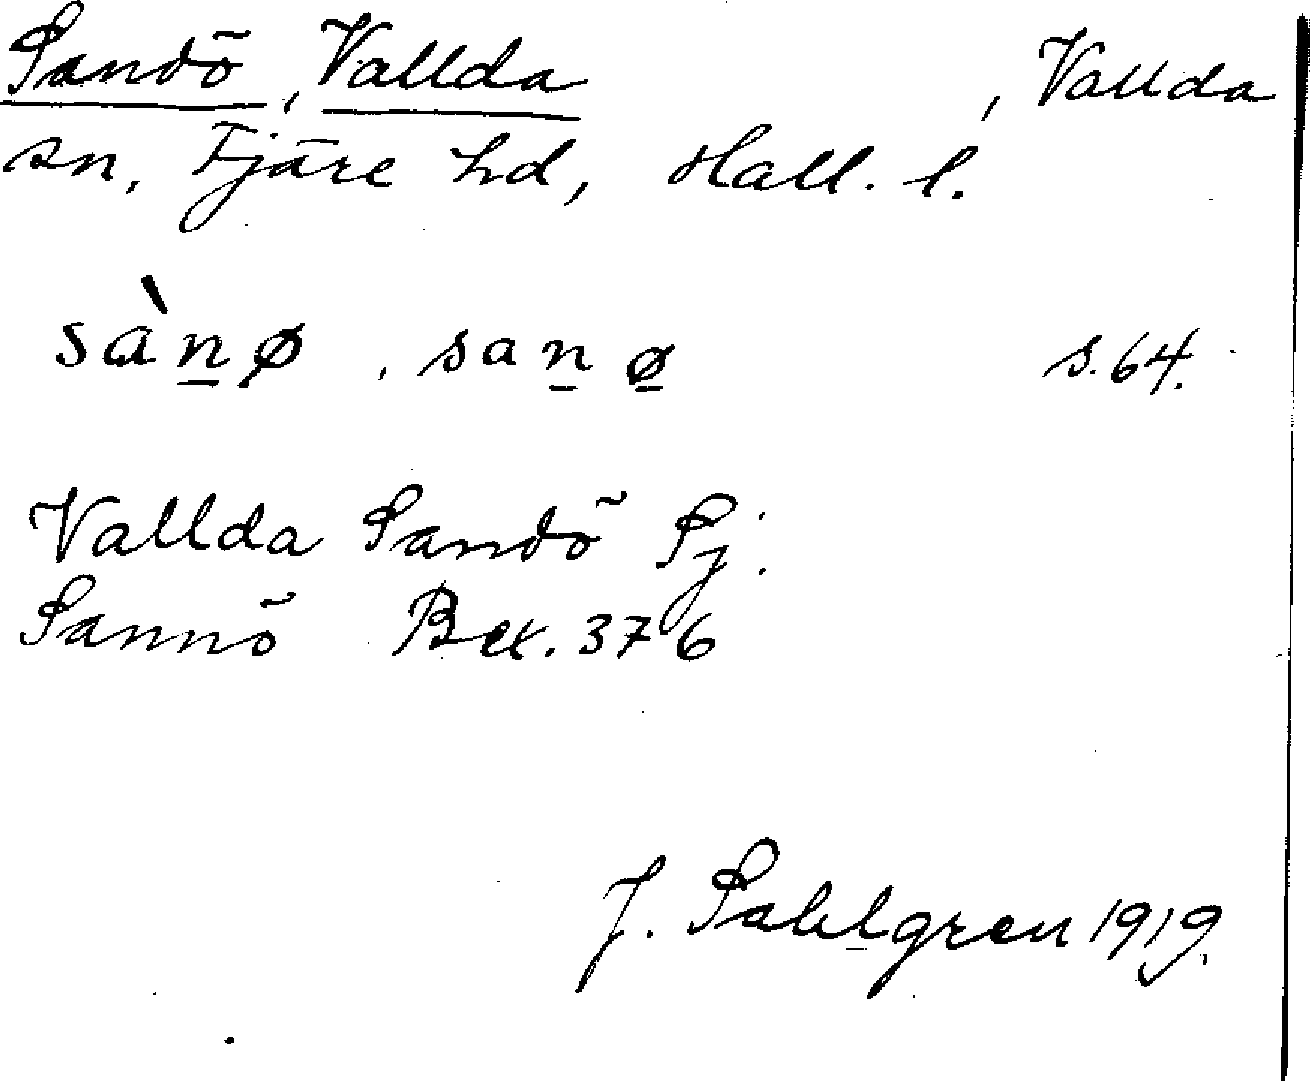 Sandö, Vallda , Vallda
sn, Fjäre hd, Hall. l.
sànø , sanø s. 64.
Vallda Sandö Sj.
Sannö Bex. 376
J. Sahlgren 1919.